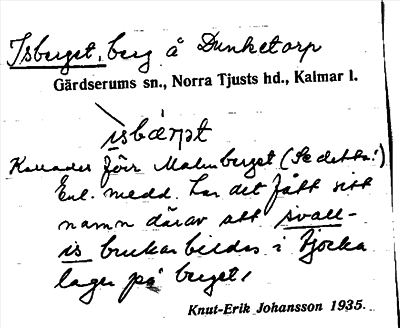 Isberget, berg å Dunketorp
Gärdserums sn., Norra Tjusts hd., Kalmar l.
isbærjət
Kallades förr Malmberget (Se detta!)
Enl. medd. har det fått sitt
namn därav att svall-
is brukar bildas i tjocka
lager på berget.
Knut-Erik Johansson 1935.